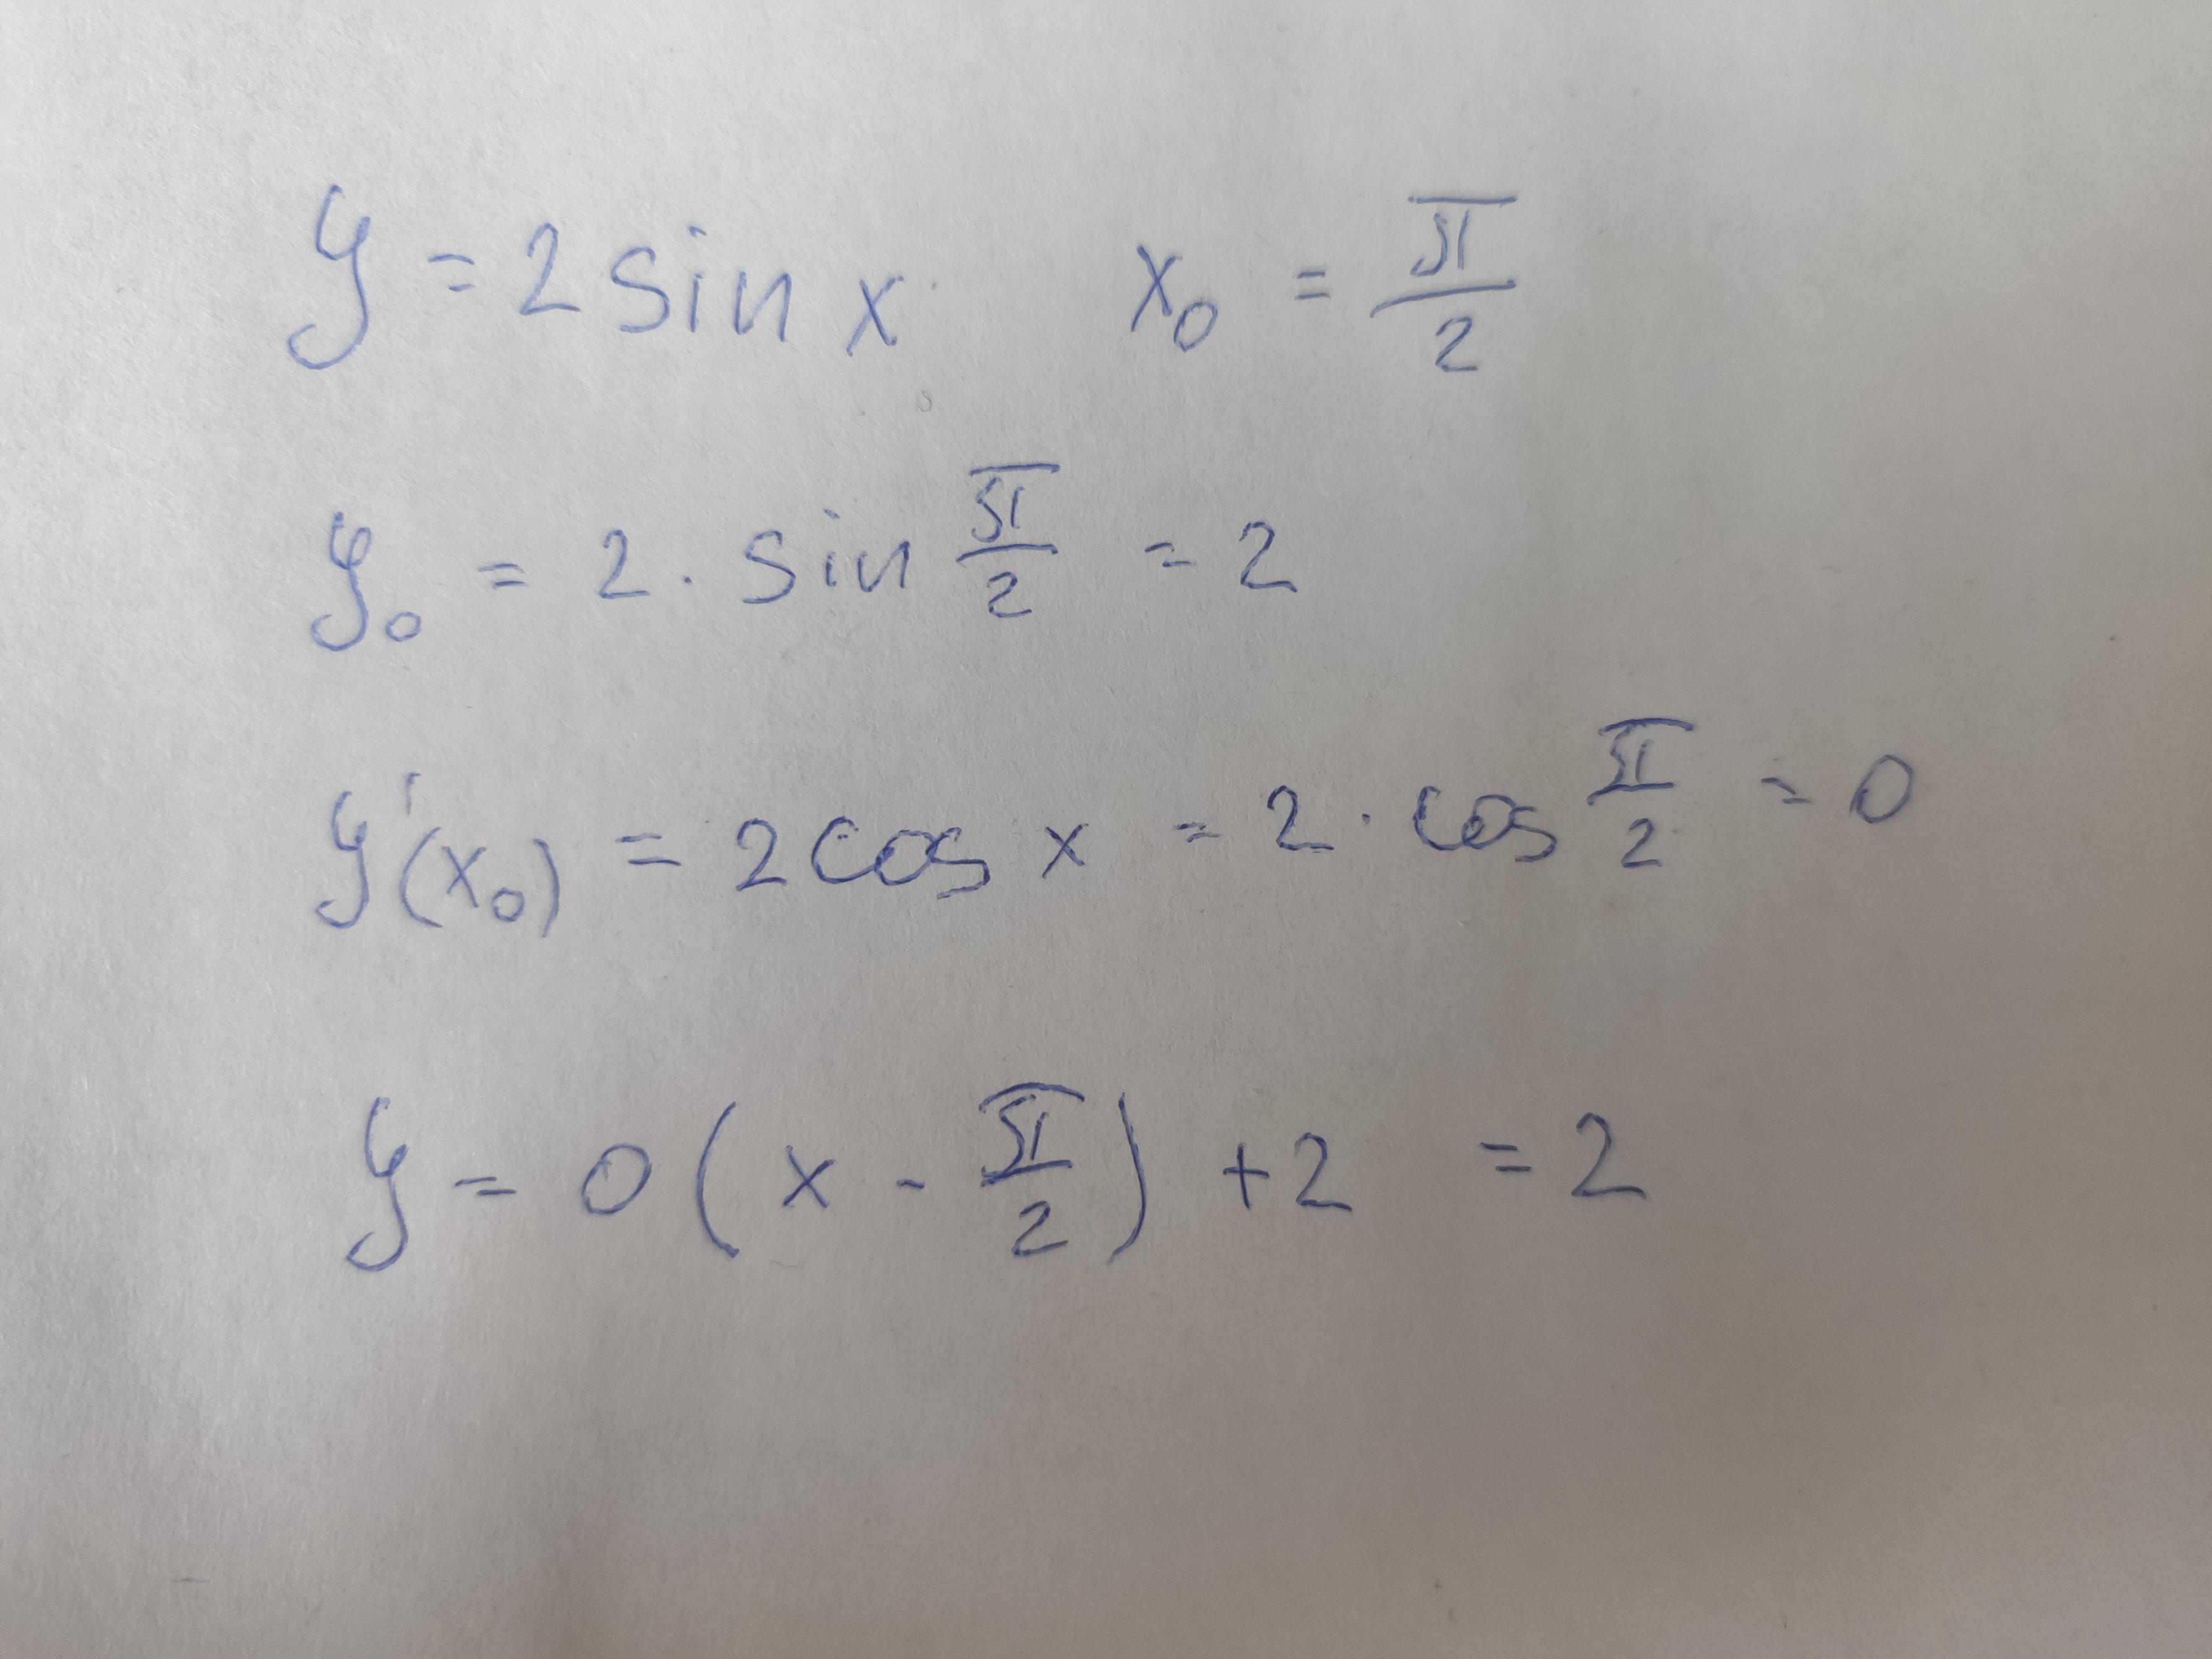 y = 2 sin x x₀ = π/2
y₀ = 2 · sin π/2 = 2
y'(x₀) = 2 cos x = 2 · cos π/2 = 0
y = 0 (x - π/2) + 2 = 2